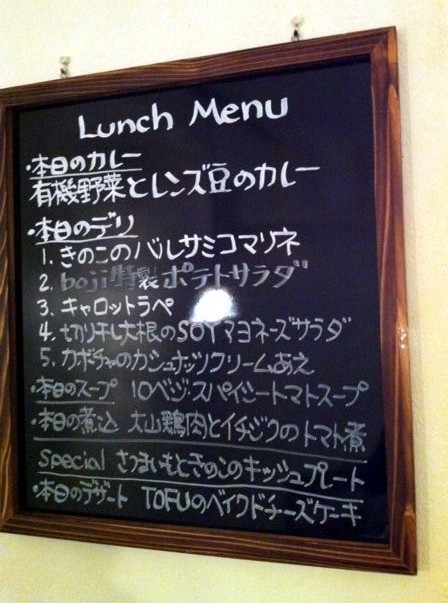 Lunch Menu
・本日のカレー
有機野菜とレンズ豆のカレー
・本日のデリ
1. きのこのバルサミコマリネ
2. boji特製ポテトサラダ
3. キャロットラペ
4. 切り干し大根のSOYマヨネーズサラダ
5. カボチャのカシュナッツクリームあえ
・本日のスープ 10ベジ・スパイシートマトスープ
・本日の煮込 大山鶏肉とイチジクのトマト煮
Special さつまいもときのこのキッシュプレート
・本日のデザート TOFUのベイクドチーズケーキ